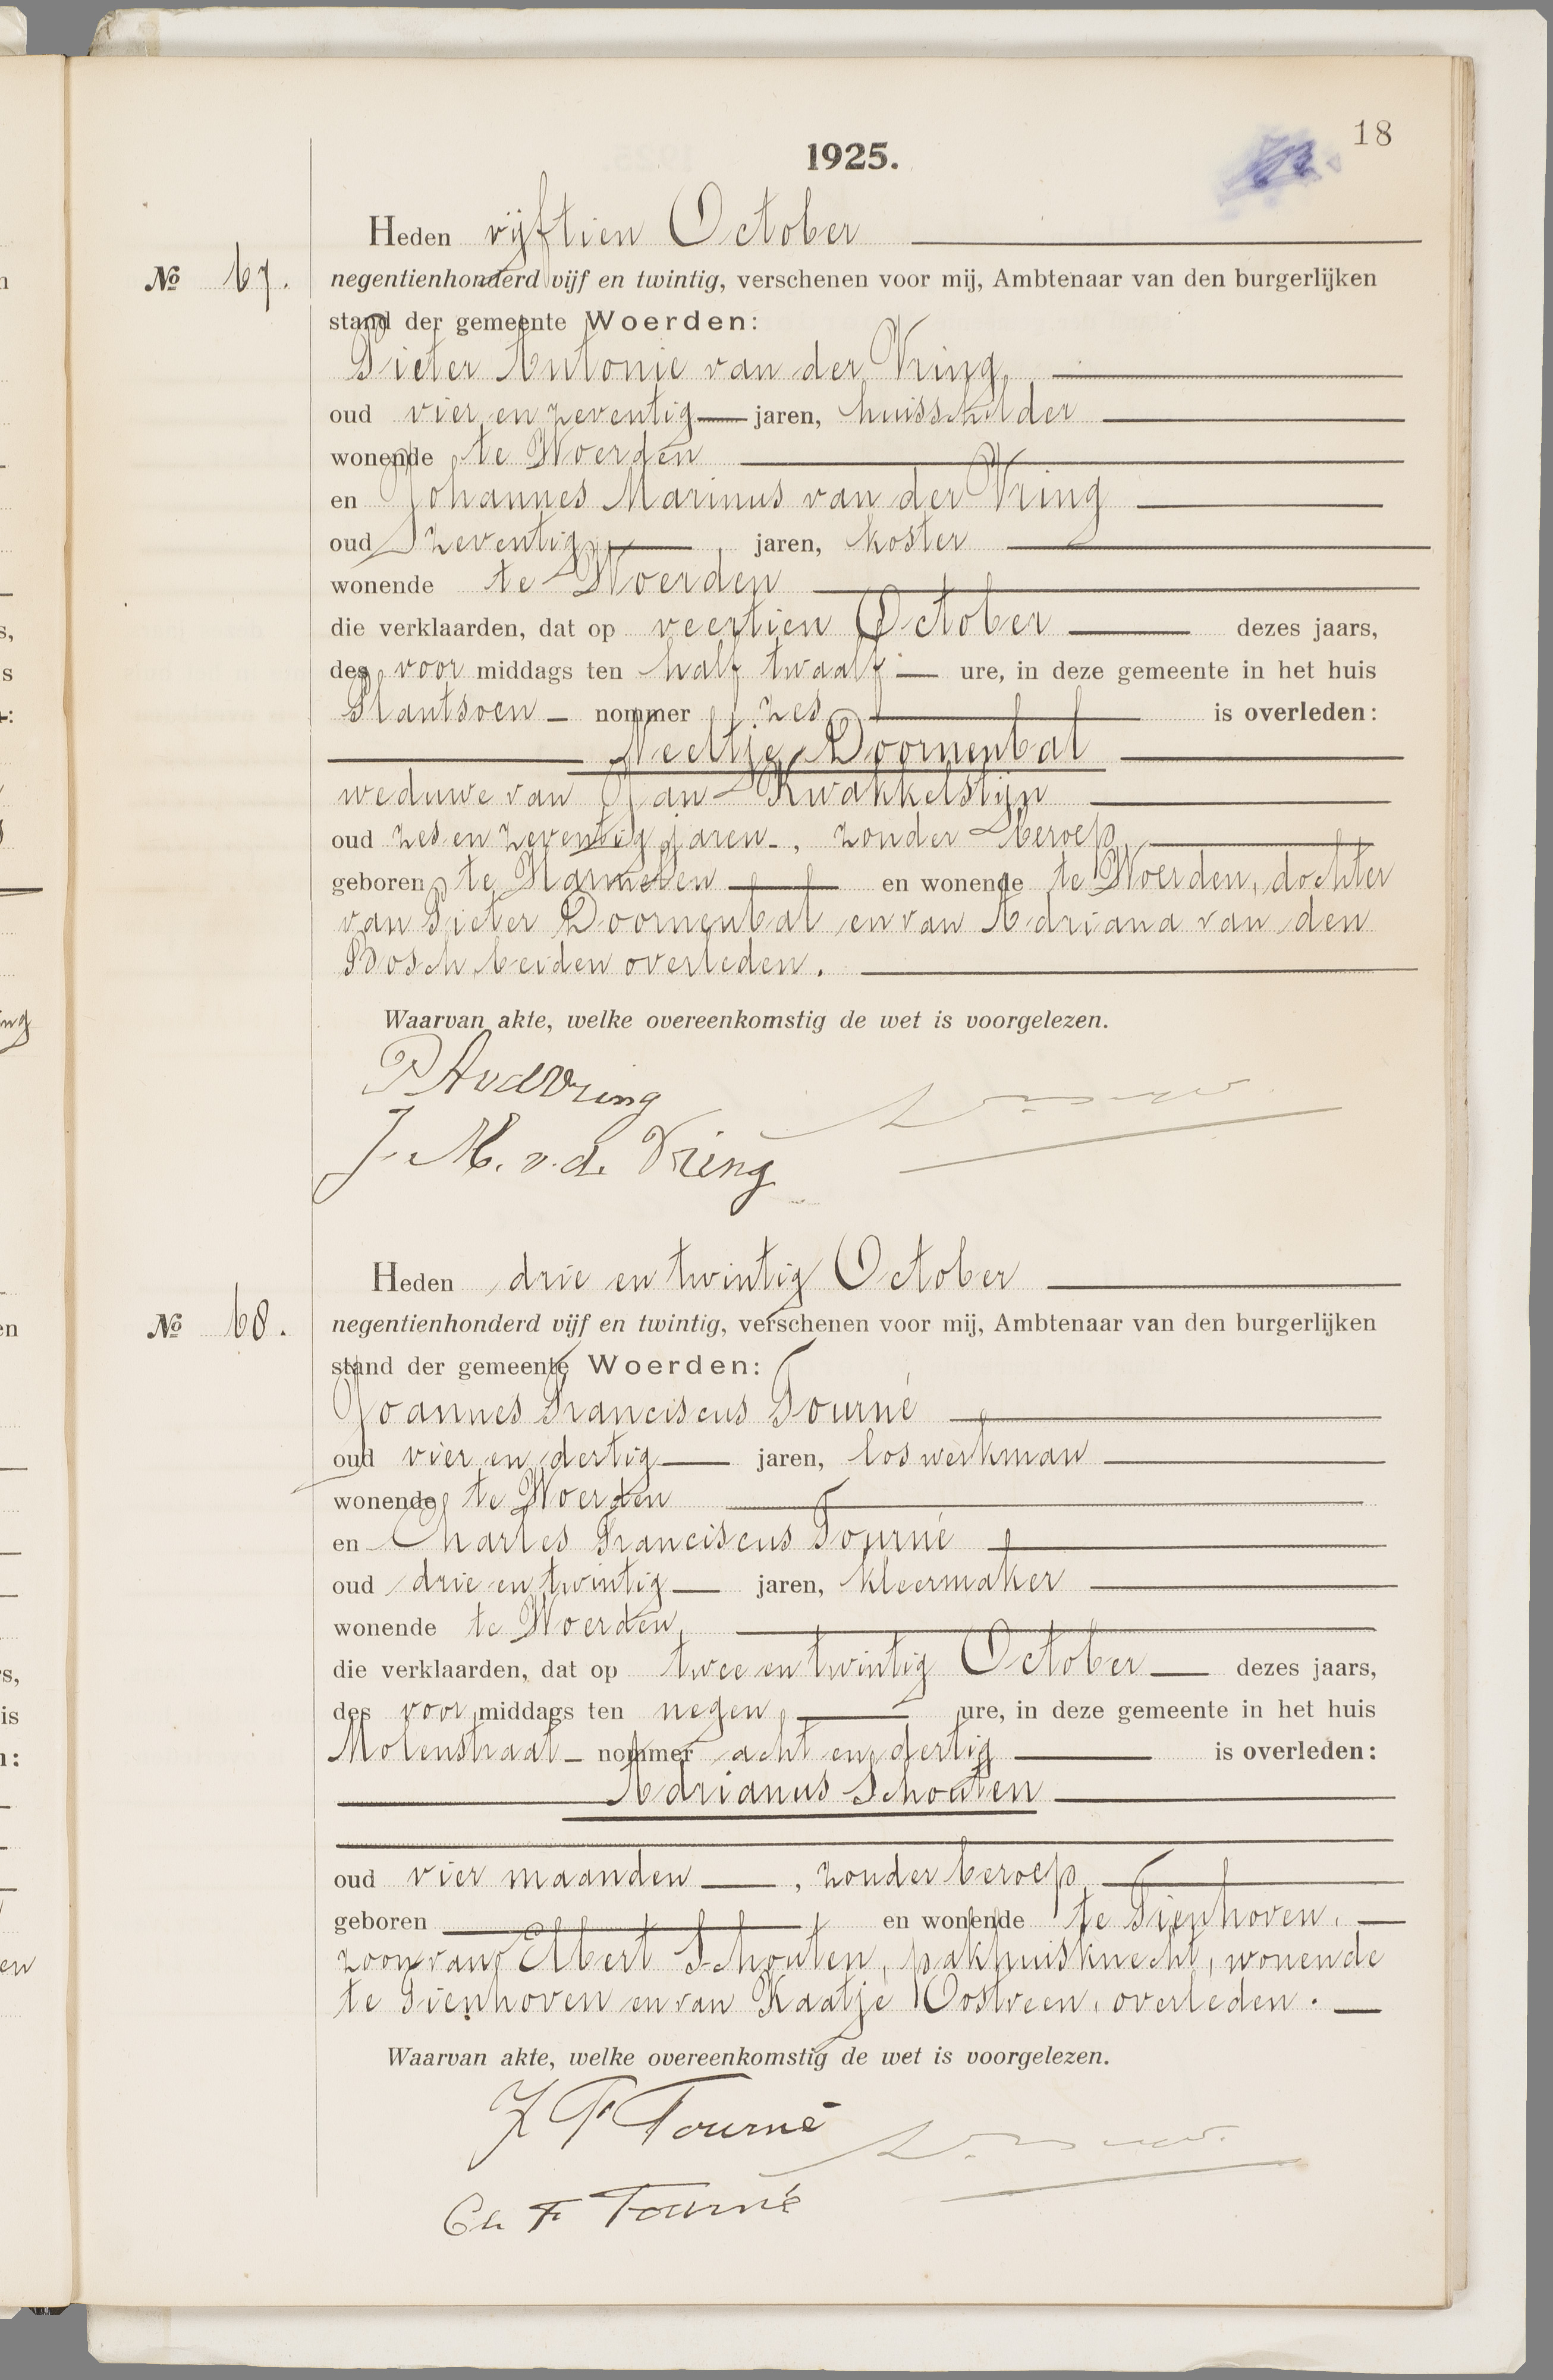 18
1925.
Heden vijftien October
No 67. negentienhonderd vijf en twintig, verschenen voor mij, Ambtenaar van den burgerlijken
stand der gemeente Woerden:
Pieter Antonie van der Vring,
oud vier en zeventig jaren, huisschilder
wonende te Woerden
en Johannes Marinus van der Vring
oud zeventig jaren, koster
wonende te Woerden
die verklaarden, dat op veertien October dezes jaars,
des voor middags ten half twaalf ure, in deze gemeente in het huis
Plantsoen nommer zes is overleden:
Neeltje Doornenbal
weduwe van Jan Kwakkelstijn
oud zes en zeventig jaren, zonder beroep,
geboren te Harmelen en wonende te Woerden, dochter
van Pieter Doornenbal en van Adriana van den
Bosch, beiden overleden.
Waarvan akte, welke overeenkomstig de wet is voorgelezen.
P A v d Vring
J. M. v. d. Vring
Heden drie en twintig October
No 68. negentienhonderd vijf en twintig, verschenen voor mij, Ambtenaar van den burgerlijken
stand der gemeente Woerden:
Joannes Franciscus Tourné
oud vier en dertig jaren, los werkman
wonende te Woerden
en Charles Franciscus Tourné
oud drie en twintig jaren, kleermaker
wonende te Woerden,
die verklaarden, dat op twee en twintig October dezes jaars,
des voor middags ten negen ure, in deze gemeente in het huis
Molenstraat nommer acht en dertig is overleden:
Adrianus Schouten
oud vier maanden, zonder beroep,
geboren en wonende te Tienhoven,
zoon van Elbert Schouten, pakhuisknecht, wonende
te Tienhoven en van Kaatje Oostveen, overleden.
Waarvan akte, welke overeenkomstig de wet is voorgelezen.
J F Tourné
Ch F Tourné